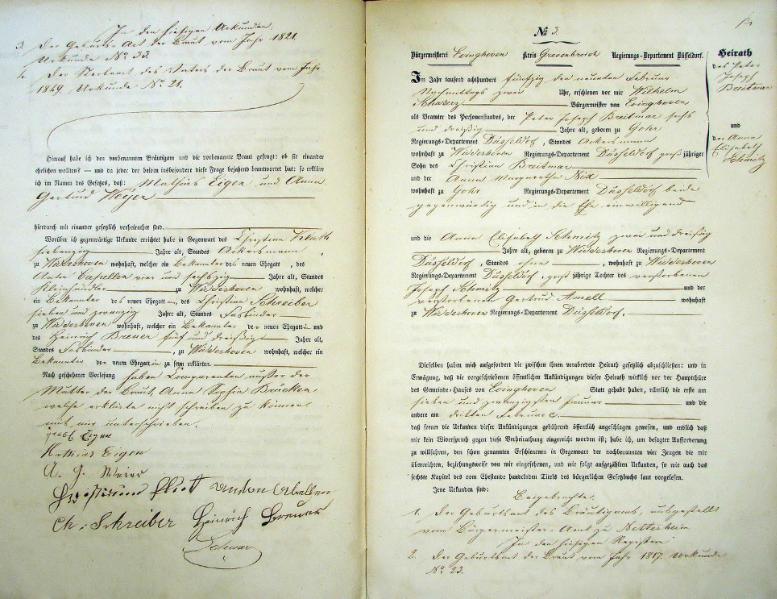 In den hiesigen Urkunden
3. Der Geburts-Act der Braut vom Jahr 1821.
Urkunde No 33.
4. Der Sterbeact des Vaters der Braut vom Jahr
1849 Urkunde No 21.
Hierauf habe ich den vorbenannten Bräutigam und die vorbenannte Braut gefragt: ob sie einander
ehelichen wollten? — und da jeder der beiden insbesondere diese Frage bejahend beantwortet hat: so erkläre
ich im Namen des Gesetzes, daß: Mathias Eigen und Anna
Gertrud Weyer
hierdurch mit einander gesetzlich verheirathet sind.
Worüber ich gegenwärtige Urkunde errichtet habe in Gegenwart des Christian
Jahre alt, Standes Ackersmann
zu Widdeshoven wohnhaft, welcher ein Bekannter des neuen Ehegatt, des
Anton vier und sechszig Jahre alt, Standes
Kleinhändler zu Widdeshoven wohnhaft, welcher
ein Bekannter des neuen Ehegatten, des Christian Schreiber
sieben und zwanzig Jahre alt, Standes
zu Widdeshoven wohnhaft, welcher ein Bekannter der neuen Ehegattin und
des Heinrich Breuer fünf und dreißig Jahre alt,
Standes zu Widdeshoven wohnhaft, welcher ein
Bekannter der neuen Ehegattin zu seyn erklärten.
Nach geschehener Vorlesung haben Comparenten außer der
Mutter der Braut, Anna Sophia Brücken
welche erklärte nicht schreiben zu können
mit mir unterschrieben.
Eigen
Mathias Eigen
A. G. Weier
Anton
Chr. Schreiber Heinrich Breuer
No 3.
Bürgermeisterei Evinghoven Kreis Grevenbroich Regierungs-Departement Düsseldorf.
Heirath
des Peter
Joseph
Breitmar
und
der Anna
Elisabeth
Schmitz
Im Jahr tausend achthundert fünfzig den neunten Februar
Nachmittags zwei Uhr, erschienen vor mir Wilhelm
Schwarz Bürgermeister von Evinghoven
als Beamter des Personenstandes, der Peter Joseph Breitmar sechs
und dreißig Jahre alt, geboren zu Gohr
Regierungs-Departement Düsseldorf, Standes Ackersmann
wohnhaft zu Widdeshoven Regierungs-Departement Düsseldorf großjähriger
Sohn des Christian Breitmar
und der Anna Margaretha
wohnhaft
zu Gohr Regierungs-Departement Düsseldorf beide
gegenwärtig und in die Ehe einwilligend
und die Anna Elisabeth Schmitz zwei und dreißig
Jahre alt, geboren zu Widdeshoven Regierungs-Departement
Düsseldorf, Standes ohne, wohnhaft zu Widdeshoven
Regierungs-Departement Düsseldorf, großjährige Tochter des verstorbenen
Joseph Schmitz und der
verstorbenen Gertrud wohnhaft
zu Widdeshoven Regierungs-Departement Düsseldorf.
Dieselben haben mich aufgefordert die zwischen ihnen verabredete Heirath gesetzlich abzuschließen: und in
Erwägung, daß die vorgeschriebenen öffentlichen Ankündigungen dieser Heirath wirklich vor der Hauptthüre
des Gemeinde-Hauses von Evinghoven Statt gehabt haben, nämlich die erste am
sieben und zwanzigsten Januar und die
andere am dritten Februar
daß ferner die Urkunden dieser Ankündigungen gebührend öffentlich angeschlagen gewesen, und endlich daß
mir kein Widerspruch gegen diese Verheirathung eingereicht worden ist; habe ich, um besagter Aufforderung
zu willfahren, den schon genannten Erschienenen in Gegenwart der nachbenannten vier Zeugen die mir
überreichten, beziehungsweise von mir eingesehenen, und wie folgt aufgezählten Urkunden, so wie auch das
sechste Kapitel des vom Ehestande handelnden Titels des bürgerlichen Gesetzbuchs laut vorgelesen.
Jene Urkunden sind:
Beigebrachte.
1. Der Geburtsact des Bräutigams, ausgestellt
vom Bürgermeister-Amt zu Nettesheim
In den hiesigen Registern:
2. Der Geburtsact der Braut vom Jahr 1817. Urkunde
No 23.